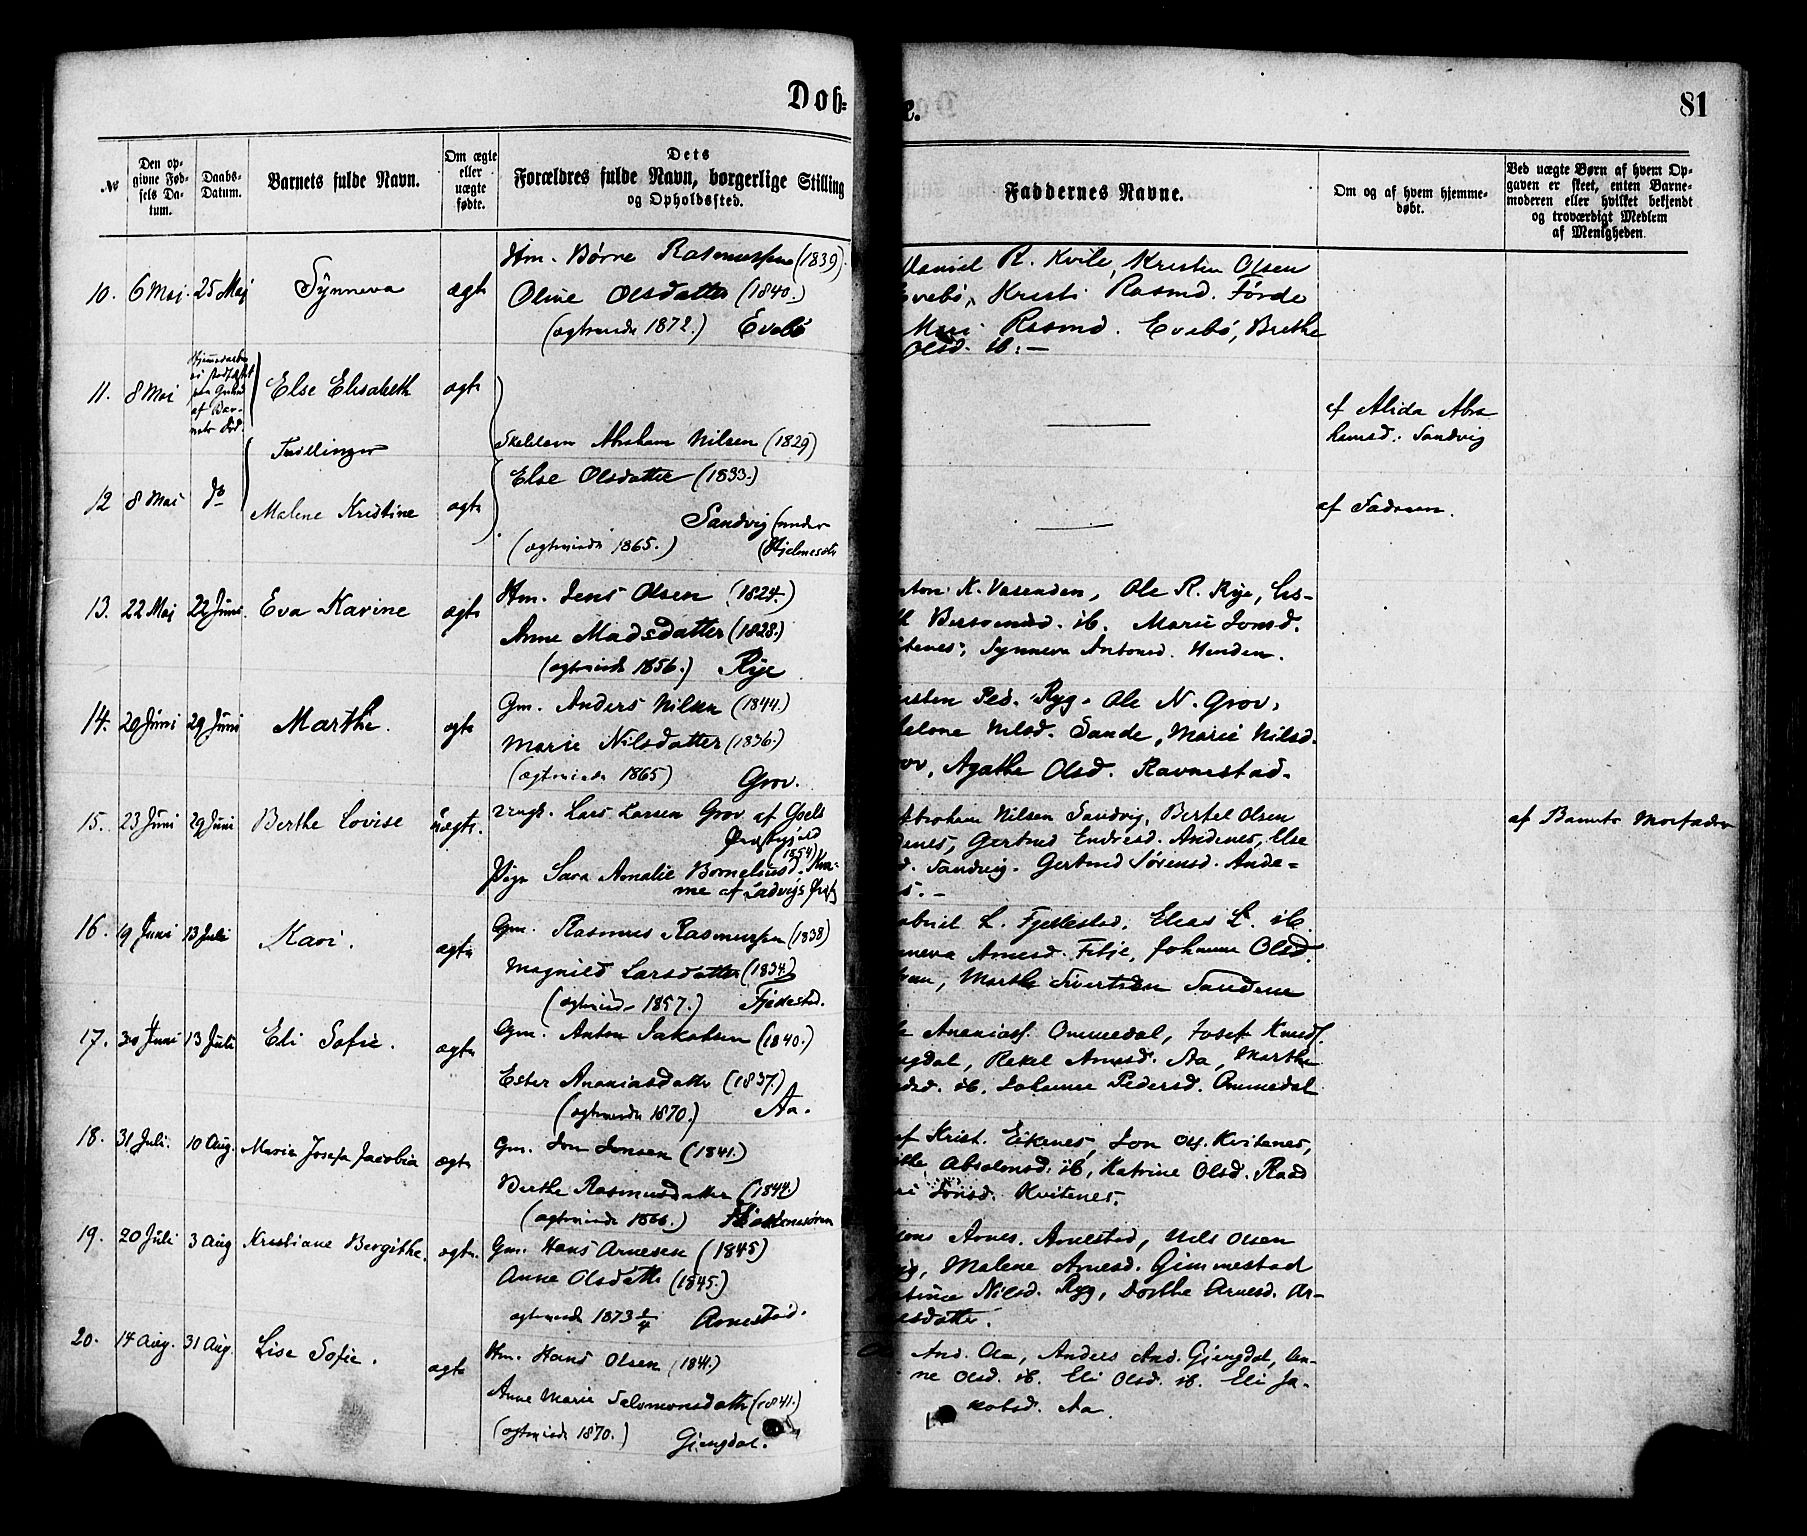 Dob=
e.
81
№
Den op-
givne Fød-
sels Da-
tum.
Daabs-
Datum.
Barnets fulde Navn.
Om ægte
eller
uægte
fødte.
Dets
Forældres fulde Navn, borgerlige Stilling
og Opholdssted.
Faddernes Navne.
Om og af hvem hjemme-
døbt.
Ved uægte Børn af hvem Op-
gaven er skeet, enten Barne-
moderen eller hvilket bekjendt
og troværdigt Medlem
af Menigheden.
10. 6 Maj. 25 Maj Synneva ægte
Hm. Børre Rasmussen (1839)
Oline Olsdatter (1840.)
(ægteviede 1872.) Evebö
Daniel R. Kvile, Kristen Olsen
Evebö, Kristi Rasmd. Förde
Mari Rasmd. Evebö, Brethe
Olsd. ib. —
11. 8 Mai
af Bar-
nets Död.
Else Elisabeth ægte
af Alida Abra
hamsd. Sandvig
Tvillinger
12 8 Mai do Malene Kristine ægte
Abraham Nilsen (1829)
Else Olsdatter (1833.)
Sandvig (under
(ægteviede 1865.) Hjelmeset
af Sadaen.
13. 22 Maj 22 Juni. Eva Karine ægte
Hm. Jens Olsen (1824.)
Anne Madsdatter (1828.)
(ægteviede 1856.) Rye
nton K. Vasenden, Ole R. Rye, Lis-
ib. Marie Jonsd.
itenes, Synneva Antonsd. Henden.
14. 20 Juni 29 Juni Marthe. ægte
Gm. Anders Nilsen (1844.)
Marie Nilsdatter (1836.)
(ægteviede 1865) Grov.
isten Ped. Ryg. Ole N. Grov,
elene Nilsd. Sande, Marie Nilsd.
ov, Agathe Olsd. Ravnestad.
15. 23 Juni 29 Juni Berthe Lovise uægte.
Ungk. Lars Larsen Grov af Gjels
Præstegjeld
Pige Sara Amalie Borneliusd. (1854) Kam-
me af Ladvigs Præst
Abraham Nilsen Sandvig, Bertel Olsen
denes, Gertrud Endresd. Andenes, Else
d. Sandvig. Gertrud Sörensd. Ande-
s. -
af Barnets Morfader
16. 19 Juni 13 Juli Kari. ægte
Gm. Rasmus Rasmussen (1838)
Magnild Larsdatter (1834)
(ægteviede 1857.) Fjellestad.
abriel L. Fjellestad, Elias L. ib.
nneva Arnesd. Fitje, Johanne Olsd.
Marthe Sivertsdtr Sandene
17. 30 Juni 13 Juli Eli Sofie. ægte
Gm. Anton Jakobsen (1840.)
Ester Ananiasdatter (1837.)
(ægteviede 1870.) Aa.
Ananiass. Ommedal, Josef Knuds.
ngdal, Rakel Arnesd. Aa, Marthe
ib. Johanne Pedersd. Ommedal
18. 31 Juli. 10 Aug. Marie Josefa Jacobia ægte
Gm. Jon Jonsen (1841.)
Berthe Rasmusdatter (1844.)
(ægteviede 1866.)
af Krist. Eikenes, Jon Ols. Kvitenes,
Absalonsd. ib, Katrine Olsd. Raad
ri Jonsd. Kvitenes.
19. 20 Juli 3 Aug Kristiane Bergithe. ægte.
Gm. Hans Arnesen (1845)
Anne Olsdatter (1845.)
ægteviede 1873 1/4 Arnestad.
ons Arnes. Arnestad, Nils Olsen
yg, Malene Arnesd. Gimmestad
istine Nilsd. Ryg, Dorthe Arnesd. Ar-
esdatter.
20. 14 Aug. 31 Aug. Lise Sofie. ægte
Hm. Hans Olsen (1841.)
Anne Marie Salomonsdatter (1841.)
(ægteviede 1870.) Gjengdal.
And. Aa, Anders And. Gjengdal, An-
ne Olsd. ib. Eli Olsd. ib. Eli Ja-
kobsd. Aa.